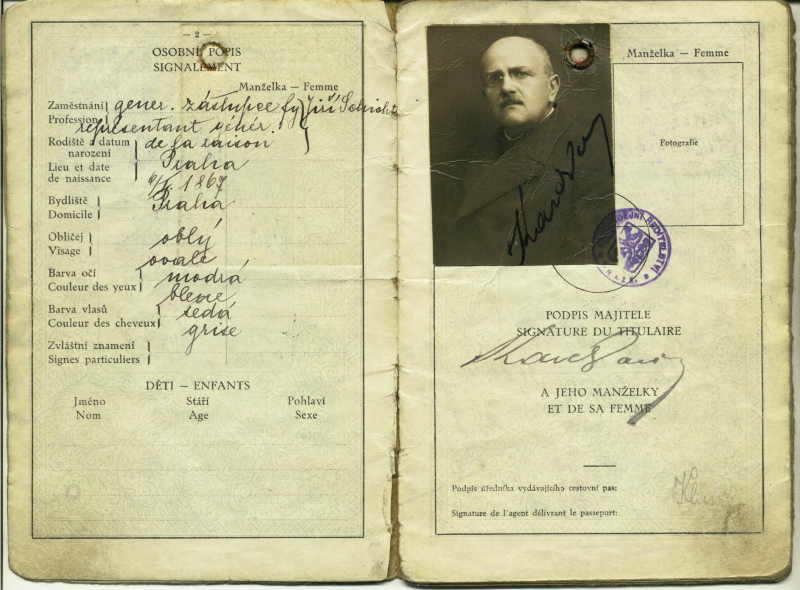 — 2 —
OSOBNÍ POPIS
SIGNALEMENT
Manželka — Femme
Zaměstnání gener. zástupce fy Jiří Schicht
Profession représentant génér.
de la raison
Rodiště a datum
narození
Lieu et date
de naissance
Praha
1867
Bydliště
Domicile
Praha
Obličej
Visage
oblý
ovale
Barva očí
Couleur des yeux
modrá
bleue
Barva vlasů
Couleur des cheveux
šedá
grise
Zvláštní znamení
Signes particuliers
DĚTI — ENFANTS
Jméno Stáří Pohlaví
Nom Age Sexe
Manželka — Femme
Fotografie
Karel
PODPIS MAJITELE
SIGNATURE DU TITULAIRE
Karel
A JEHO MANŽELKY
ET DE SA FEMME
Podpis úředníka vydávajícího cestovní pas:
Signature de l'agent délivrant le passeport: